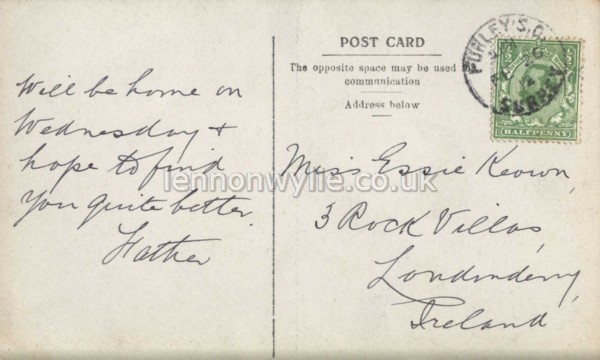 POST CARD
The opposite space may be used
communication
Address below
PURLEY S.O.
SURREY
HALFPENNY
Will be home on
Wednesday &
hope to find
you quite better.
Father
Miss Essie Keown,
3 Rock Villas,
Londonderry,
Ireland
lennonwylie.co.uk